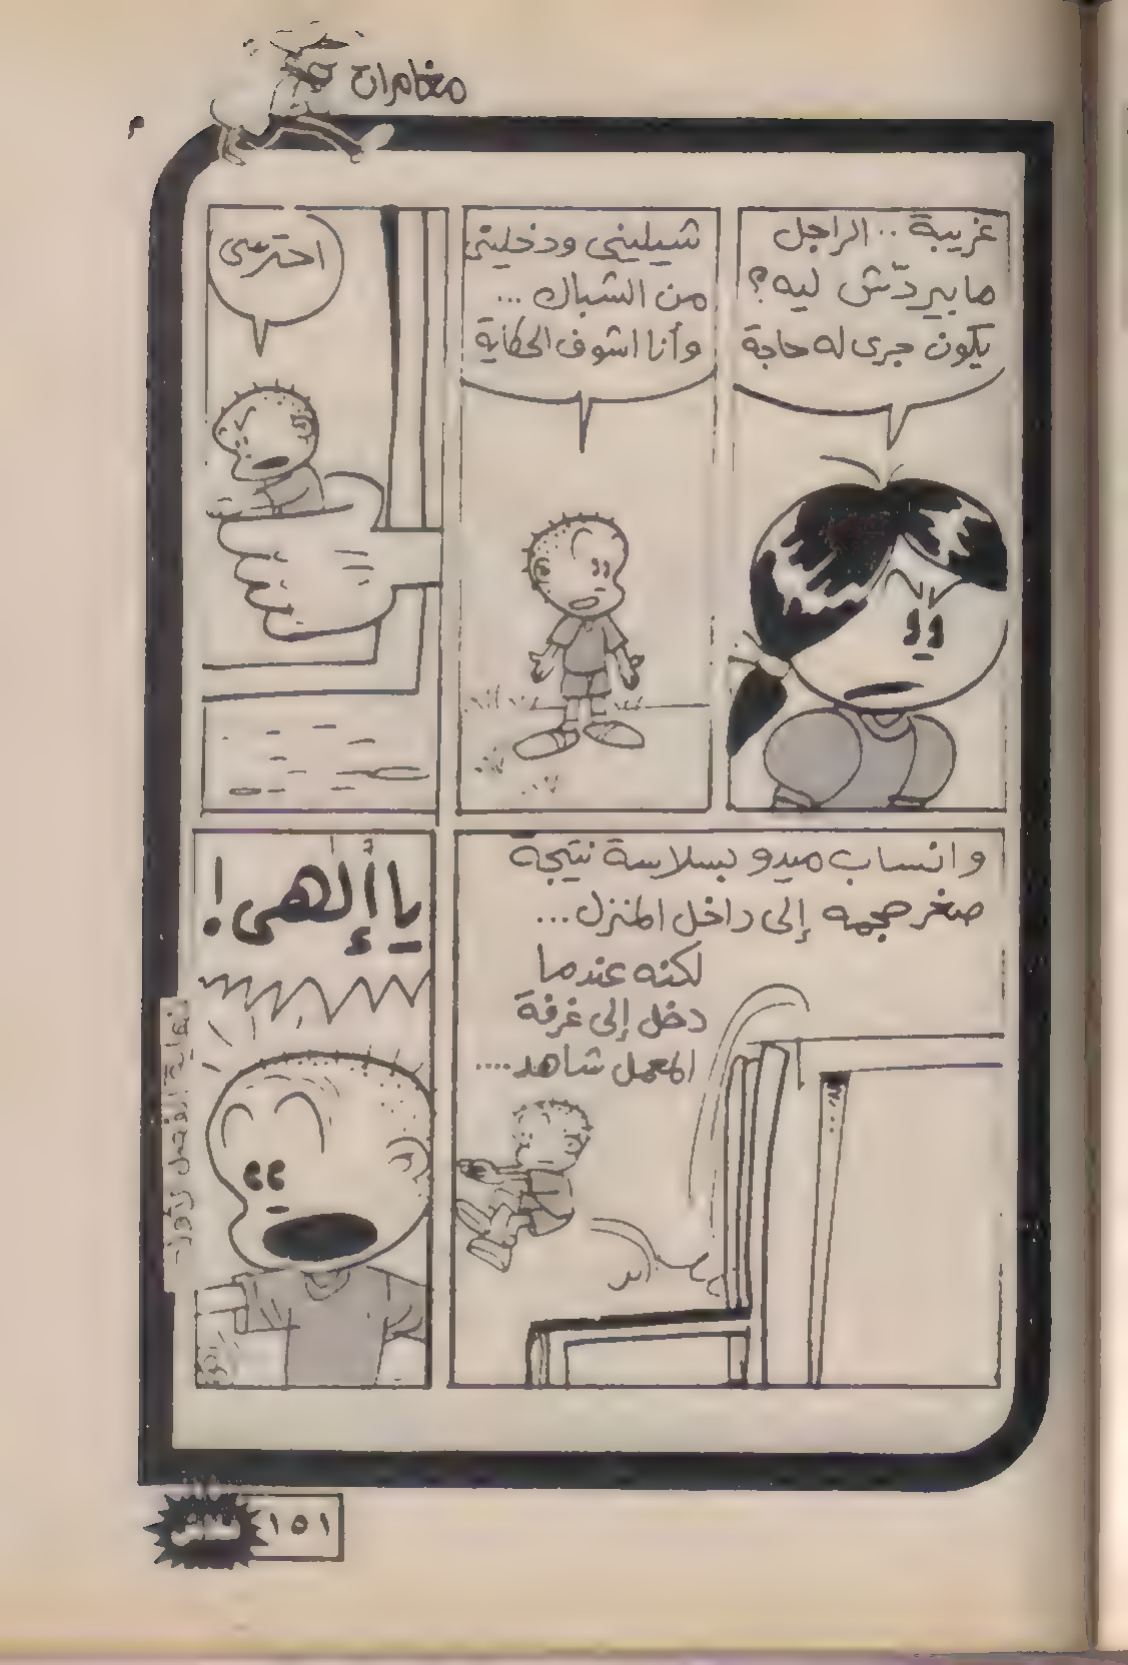 مغامرات
غريبة .. الراجل
مابيردّش ليه؟
يكون جرى له حاجة
شيليني ودخليني
من الشباك ...
وأنا اشوف الحكاية
احترسى
وانساب ميدو بسلاسة نتيجة
صغر حجمه إلى داخل المنزل...
لكنه عندما
دخل إلى غرفة
المعمل شاهد....
يا إلهى!
نهاية الفصل الأول
١٥١
فلاش